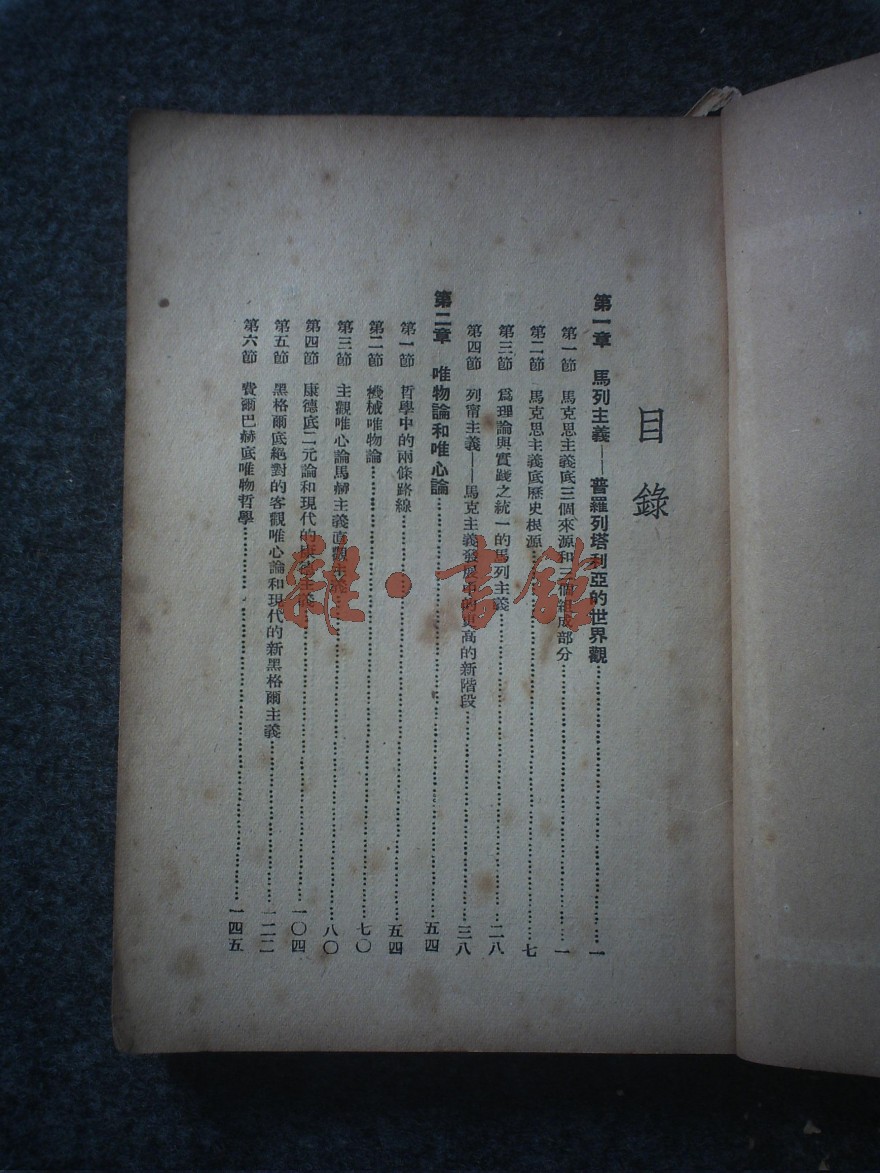 目錄
第一章 馬列主義——普羅列塔利亞的世界觀……一
第一節 馬克思主義底三個來源和三個組成部分……一
第二節 馬克思主義底歷史根源……七
第三節 爲理論與實踐之統一的馬列主義……二八
第四節 列甯主義——馬克主義發展中的更高的新階段……三八
第二章 唯物論和唯心論……五四
第一節 哲學中的兩條路線……五四
第二節 機械唯物論……七〇
第三節 主觀唯心論馬赫主義直觀主義……八〇
第四節 康德底二元論和現代的康德主義……一〇四
第五節 黑格爾底絕對的客觀唯心論和現代的新黑格爾主義……一二二
第六節 費爾巴赫底唯物哲學……一四五
雜·書館